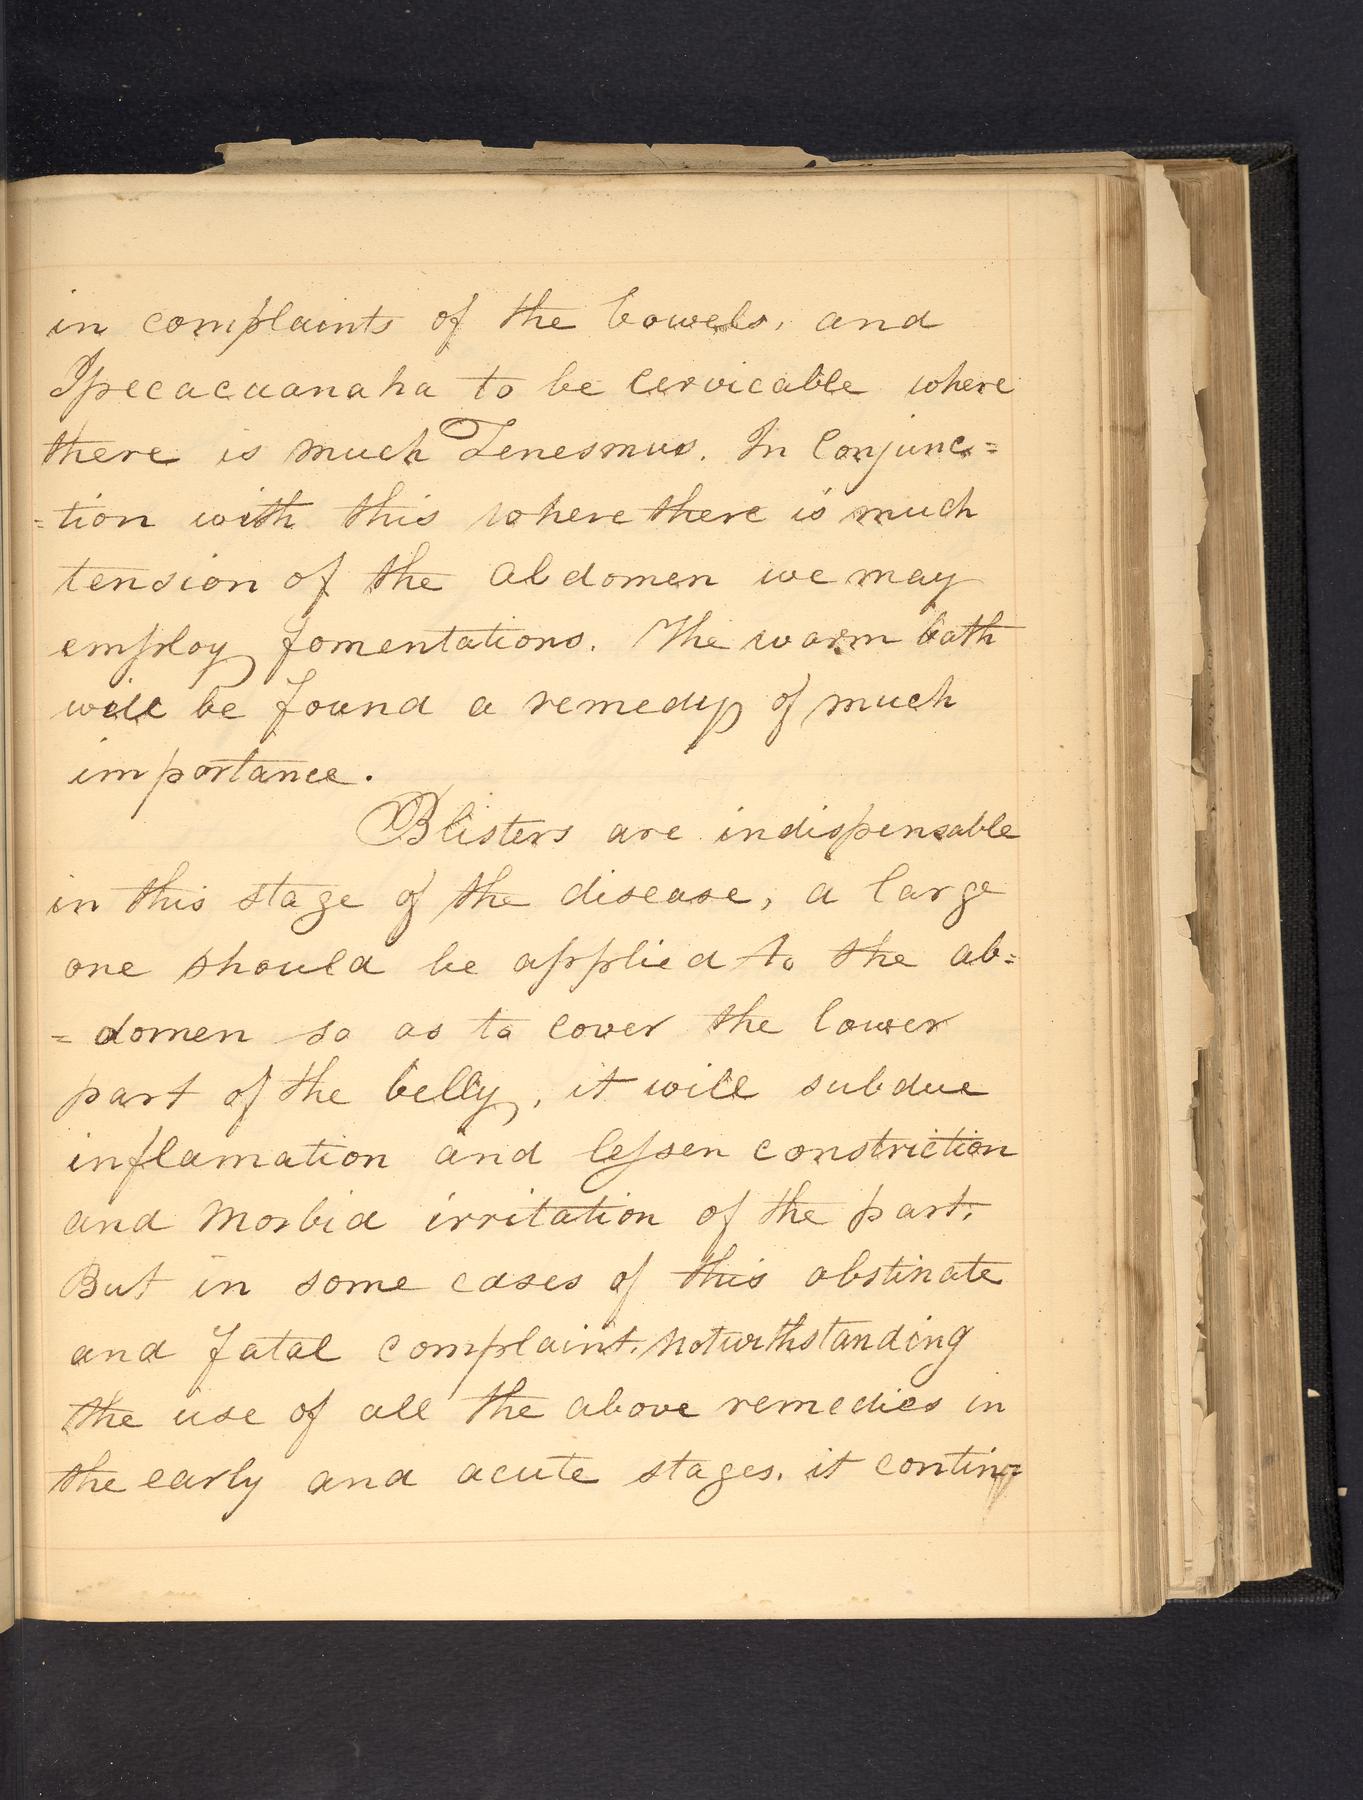 in complaints of the bowels, and
Ipecacuanaha to be cervicable where
there is much Tenesmus. In Conjunc=
=tion with this where there is much
tension of the abdomen we may
employ fomentations. The warm bath
will be found a remedy of much
importance.
Blisters are indispensable
in this stage of the disease, a large
one should be applied to the ab=
=domen so as to cover the lower
part of the belly, it will subdue
inflamation and lessen constriction
and morbid irritation of the part.
But in some cases of this obstinate
and fatal complaint, notwithstanding
the use of all the above remedies in
the early and acute stages, it contin=